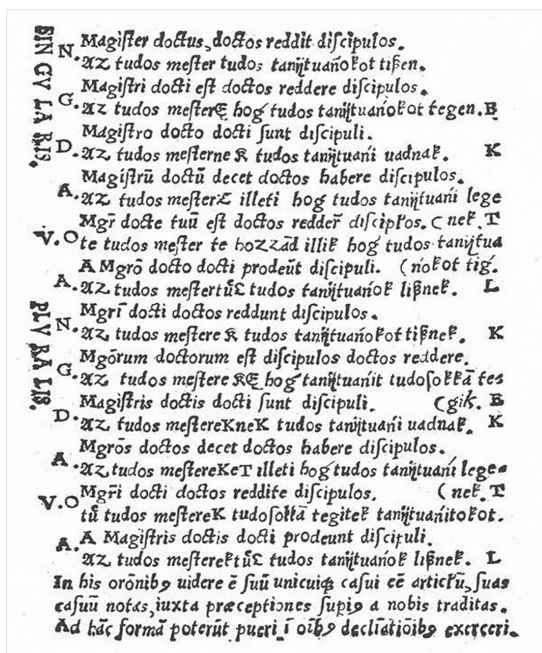 SINGVLARIS.
N. Magiſter doctus, doctos reddit diſcipulos.
Az tudos meſter tudos tanijtuańokot tißen.
G. Magiſtri docti eſt doctos reddere diſcipulos.
Az tudos meſterE hog tudos tanijtuańokot tegen. E
D. Magiſtro docto docti ſunt diſcipuli.
Az tudos meſterne K tudos tanijtuańi uadnak. K
A. Magiſtrū doctū decet doctos habere diſcipulos.
Az tudos meſter illeti hog tudos tanijtuańi lege
V.O Mgr̄ docte tuū eſt doctos redder̄ (nek. T
te tudos meſter te hozzād illik hog tudos tanijtua
A. A Mgrō docto docti prodeūt diſcipuli. (ńokot tig.
Az tudos tudos tanijtuańok lißnek. L
PLVRALIS.
N. Mgri docti doctos reddunt diſcipulos.
Az tudos meſtere K tudos tanijtuańokot tißnek. K
G. Mgōrum doctorum eſt diſcipulos doctos reddere.
Az tudos meſtere KE hog tanijtuańit tudoſokkā
D. Magiſtris doctis docti ſunt diſcipuli. (gik. E
Az tudos meſtereKneK tudos tanijtuańi uadnak. K
A. Mgrōs doctos decet doctos habere diſcipulos.
Az tudos meſtereKeT illeti hog tudos tanijtuańi lege-
V.O Mgr̄i docti doctos reddite diſcipulos. (nek. T
tudos meſtereK tegitek tanijtuańitokot.
A. A Magiſtris doctis docti prodeunt diſcipuli.
Az tudos tudos tanijtuańok lißnek. L
In his orōnibꝰ uidere ē ſuū unicuiqꝫ caſui eē articłū, ſuas
caſuū notas, iuxta præceptiones ſupiꝰ a nobis traditas.
Ad hāc formā poterūt pueri ī oībꝰ declīatiōibꝰ exerceri.